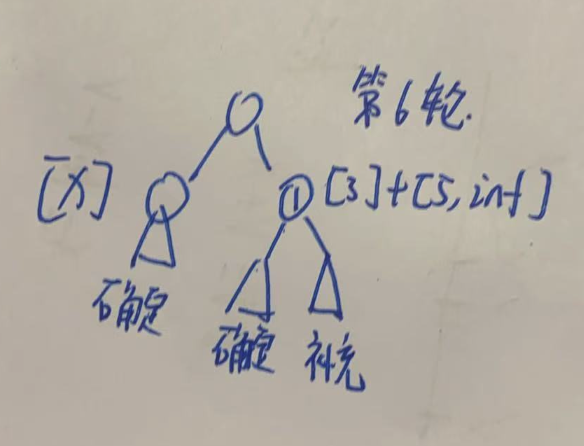 第6轮.
[X]
① [3]+[5,inf]
确定
确定 补充